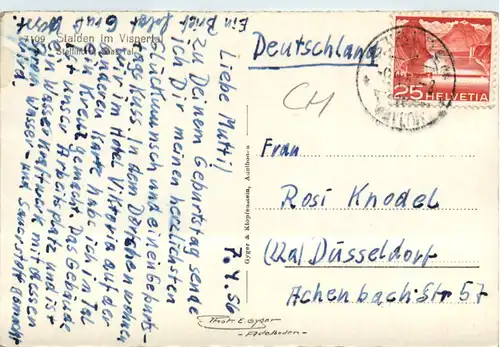 7109 Stalden im Vispertal
Ein Brief folgt Gruß
Lieb Mutti,
Zu Deinem Geburtstag sende
ich Dir meinen herzlichsten
Glückwunsch und einen Geburts-
tags Kuss. In dem Dörfchen wohnen
wir im Hotel Viktoria auf der
anderen Karte habe ich im Tal
ein Kreuz gemacht. Das Gebäude
ist unser Arbeitsplatz und ist
ein Wasserkraftwerk mit dessen
Wasser- und Sauerstoff gemacht
wird.
7.4.50
Gyger & Klopfenstein, Adelboden
Photo E. Gyger
Adelboden
Deutschland
CH
25 HELVETIA
Frau
Rosi Knodel
(22a) Düsseldorf
Achenbach Str 57